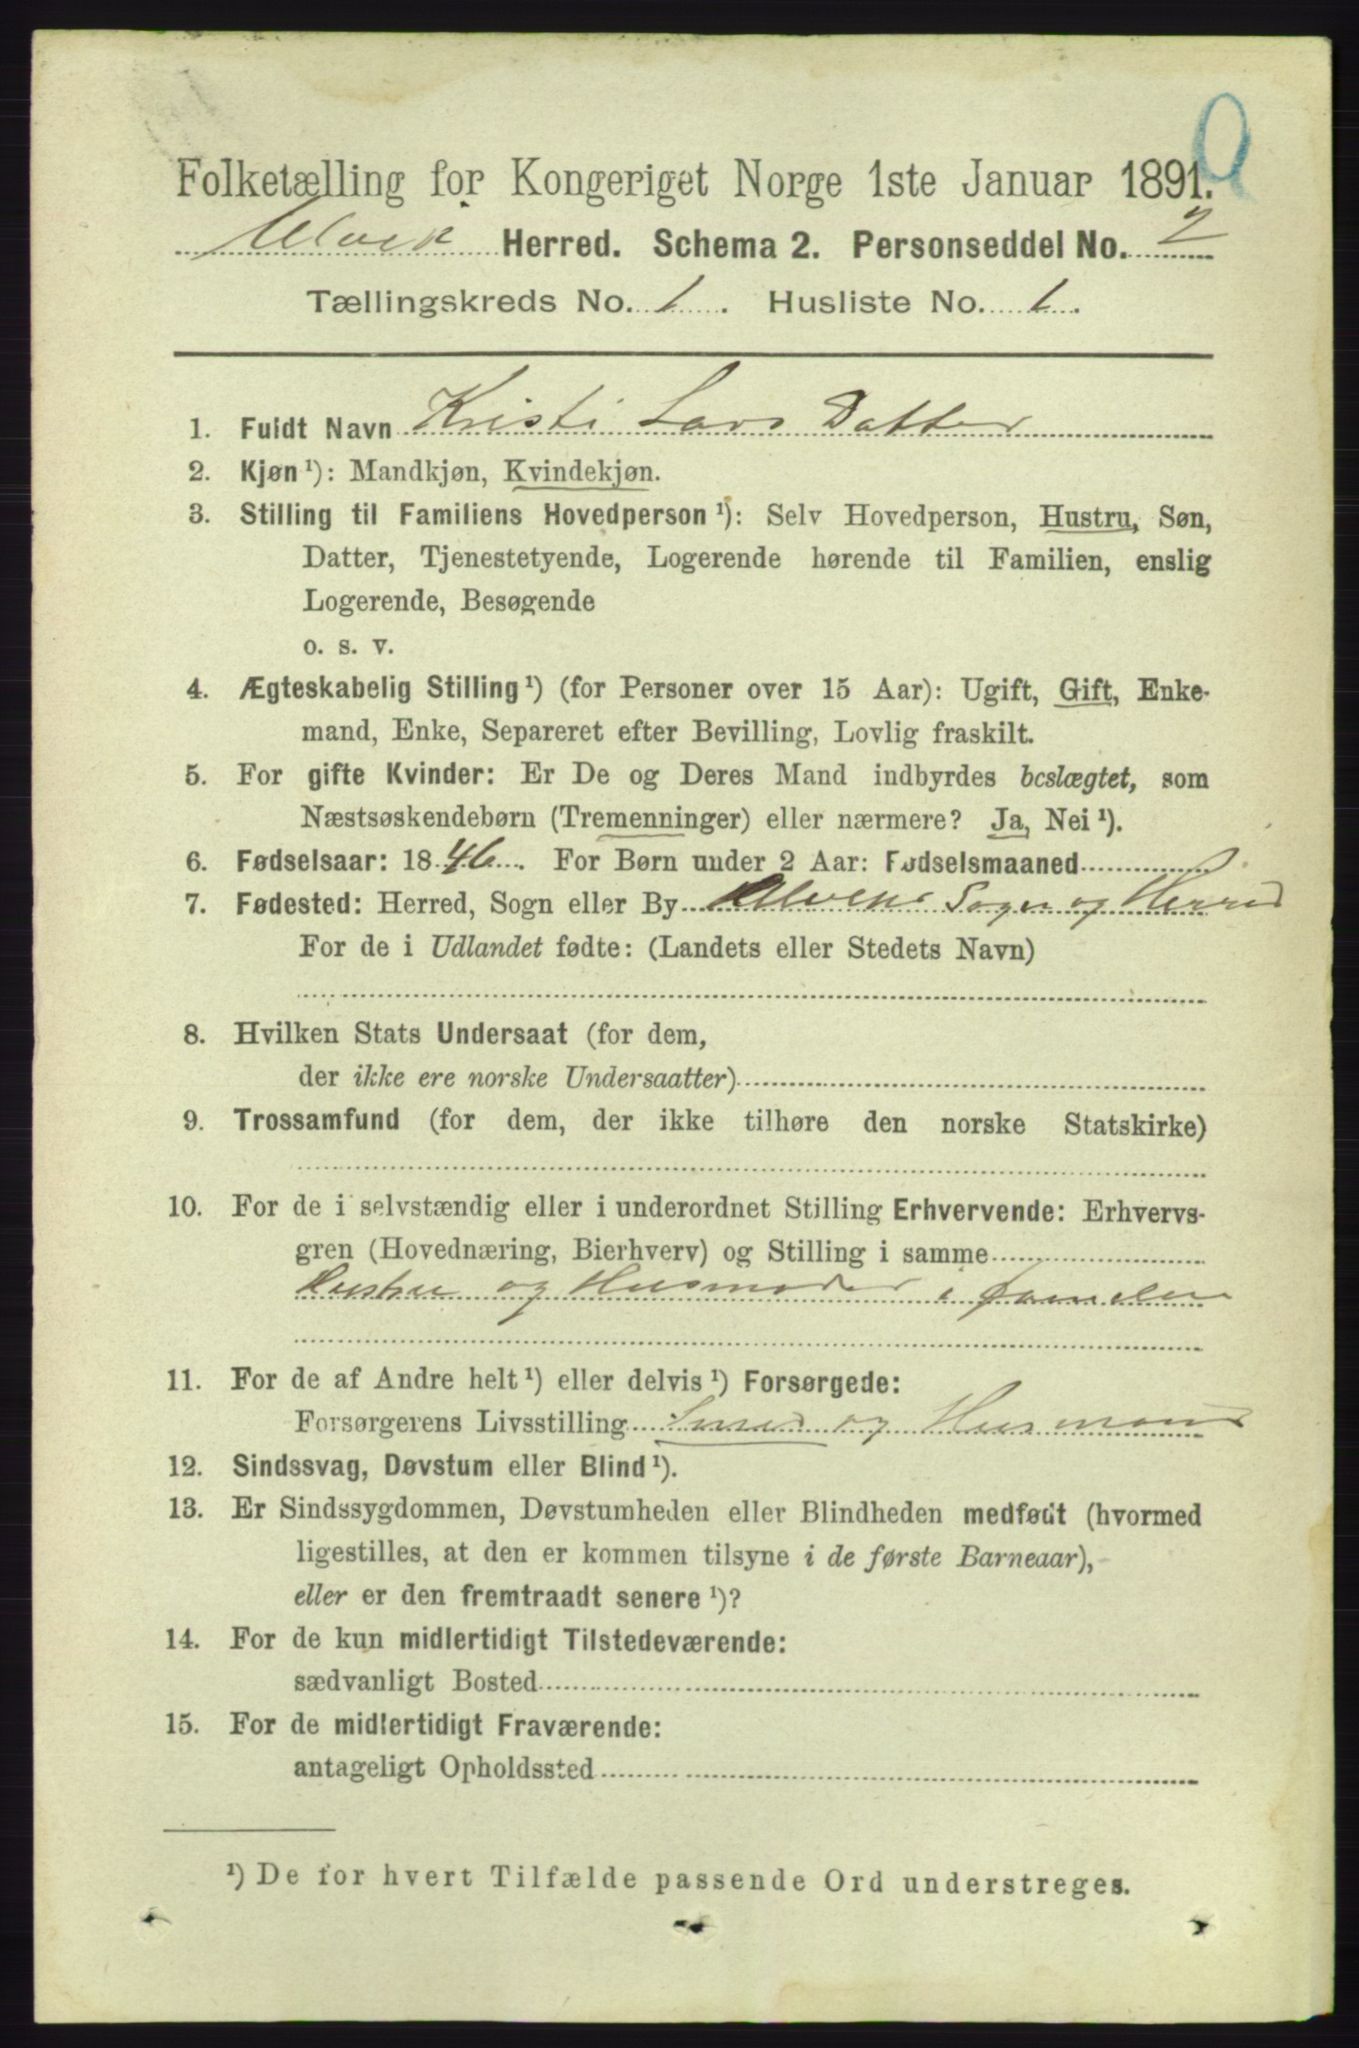 Folketælling for Kongeriget Norge 1ste Januar 1891.
Ulvik Herred. Schema 2. Personseddel No. 2
Tællingskreds No. 1. Husliste No. 1.
1. Fuldt Navn Kristi Lars Datter
2. Kjøn ¹): Mandkjøn, Kvindekjøn.
3. Stilling til Familiens Hovedperson ¹): Selv Hovedperson, Hustru, Søn,
Datter, Tjenestetyende, Logerende hørende til Familien, enslig
Logerende, Besøgende
o. s. v.
4. Ægteskabelig Stilling ¹) (for Personer over 15 Aar): Ugift, Gift, Enke-
mand, Enke, Separeret efter Bevilling, Lovlig fraskilt.
5. For gifte Kvinder: Er De og Deres Mand indbyrdes beslægtet, som
Næstsøskendebørn (Tremenninger) eller nærmere? Ja, Nei ¹).
6. Fødselsaar: 1846. For Børn under 2 Aar: Fødselsmaaned
7. Fødested: Herred, Sogn eller By Ulviks Sogn og Herred
For de i Udlandet fødte: (Landets eller Stedets Navn)
8. Hvilken Stats Undersaat (for dem,
der ikke ere norske Undersaatter)
9. Trossamfund (for dem, der ikke tilhøre den norske Statskirke)
10. For de i selvstændig eller i underordnet Stilling Erhvervende: Erhvervs-
gren (Hovednæring, Bierhverv) og Stilling i samme
Hustru og Husmoder i Familien
11. For de af Andre helt ¹) eller delvis ¹) Forsørgede:
Forsørgerens Livsstilling Smed og Husmand
12. Sindssvag, Døvstum eller Blind ¹).
13. Er Sindssygdommen, Døvstumheden eller Blindheden medfødt (hvormed
ligestilles, at den er kommen tilsyne i de første Barneaar),
eller er den fremtraadt senere ¹)?
14. For de kun midlertidigt Tilstedeværende:
sædvanligt Bosted
15. For de midlertidigt Fraværende:
antageligt Opholdssted
¹) De for hvert Tilfælde passende Ord understreges.